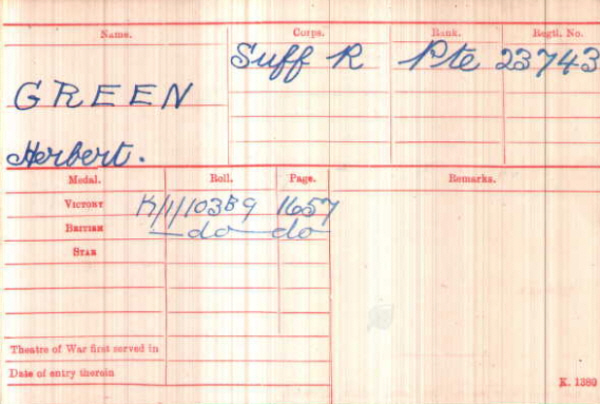 Name. Corps. Rank. Regtl. No.
Suff R Pte 23743
GREEN
Herbert.
Medal. Roll. Page. Remarks.
VICTORY K/1/103B9 1657
BRITISH —do— do
STAR
Theatre of War first served in
Date of entry therein
K. 1380